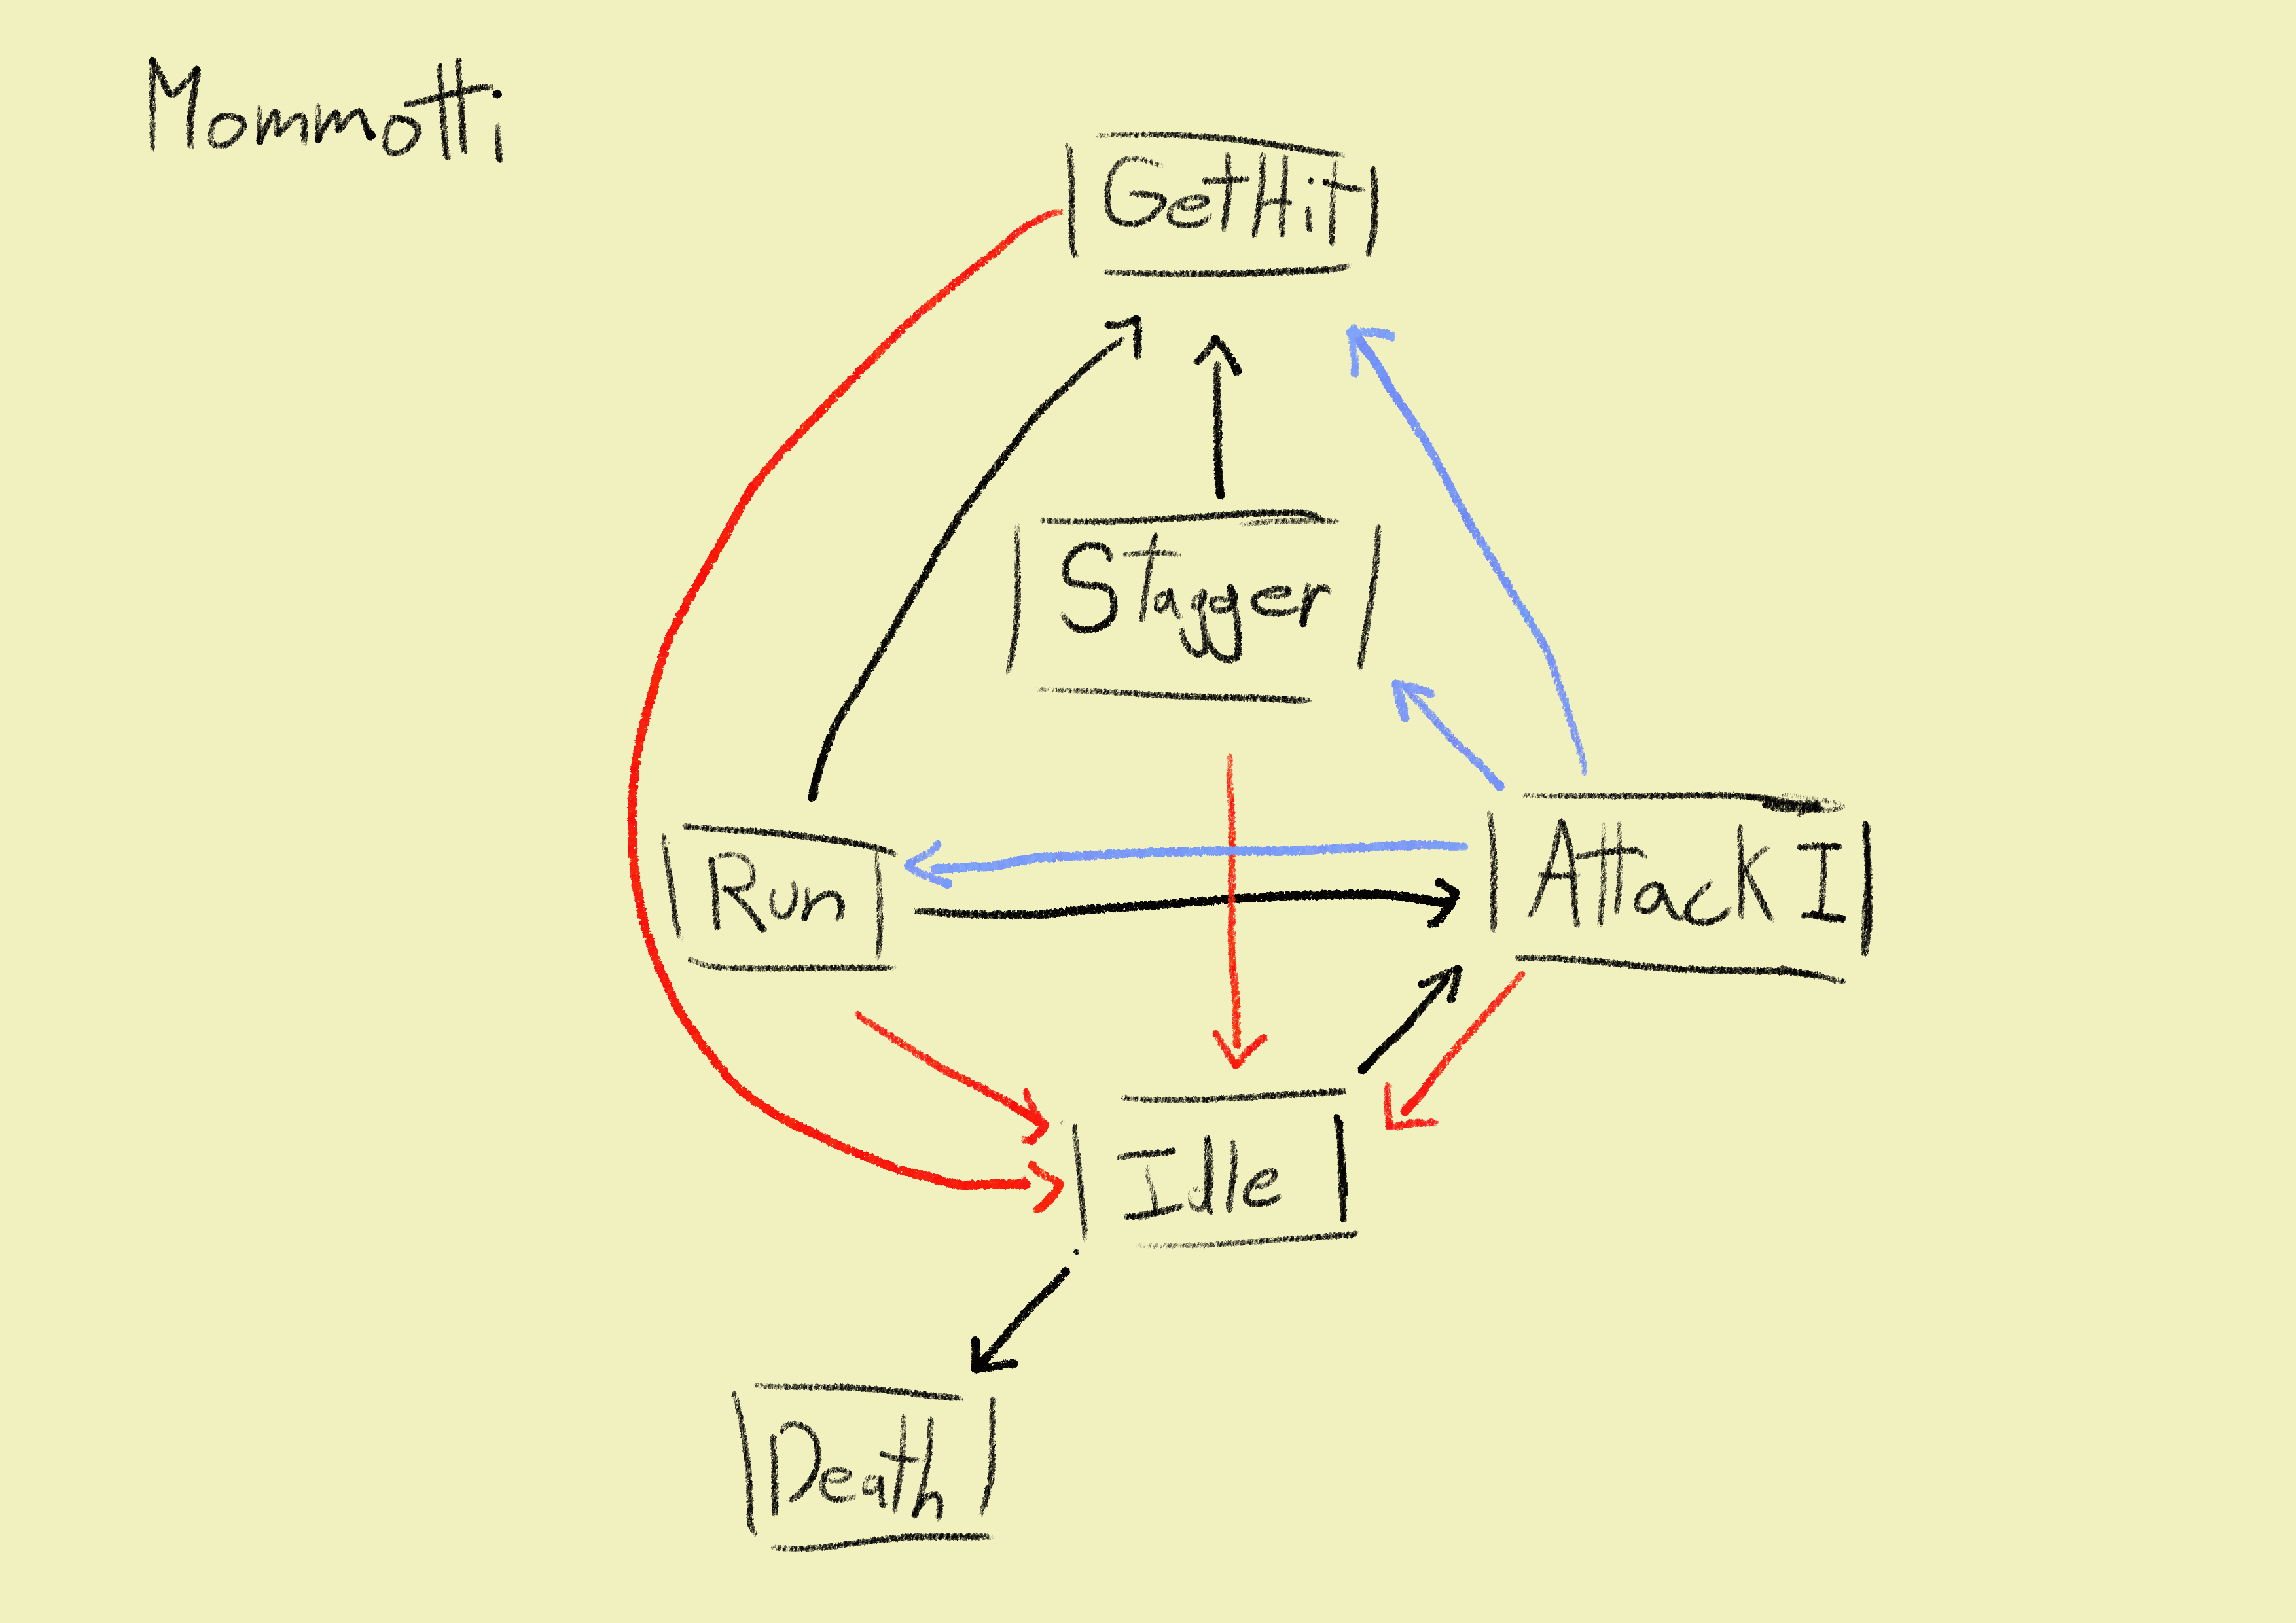 Mommotti
GetHit
Stagger
Run
Attack I
Idle
Death